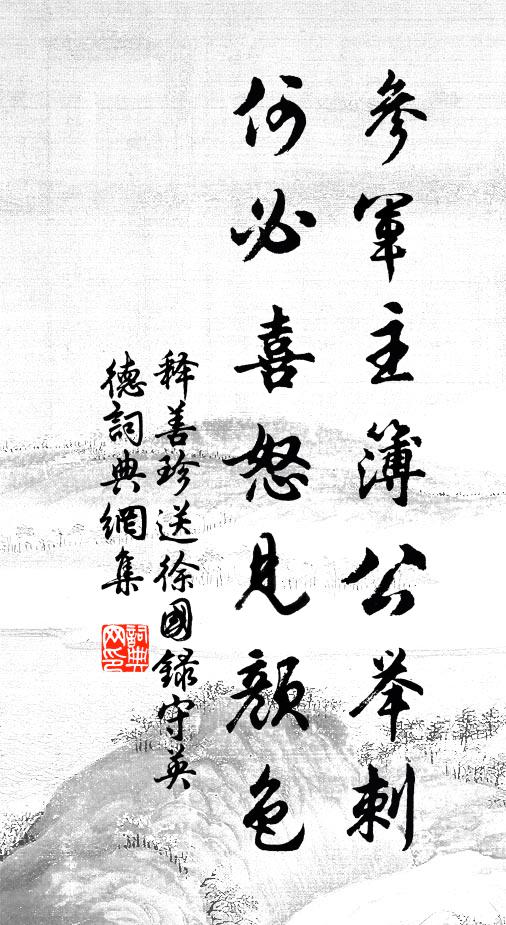 參軍主簿公举刺
何必喜怒見顏色
释善珍送徐國録守英
德詞典網集
詞典
网印